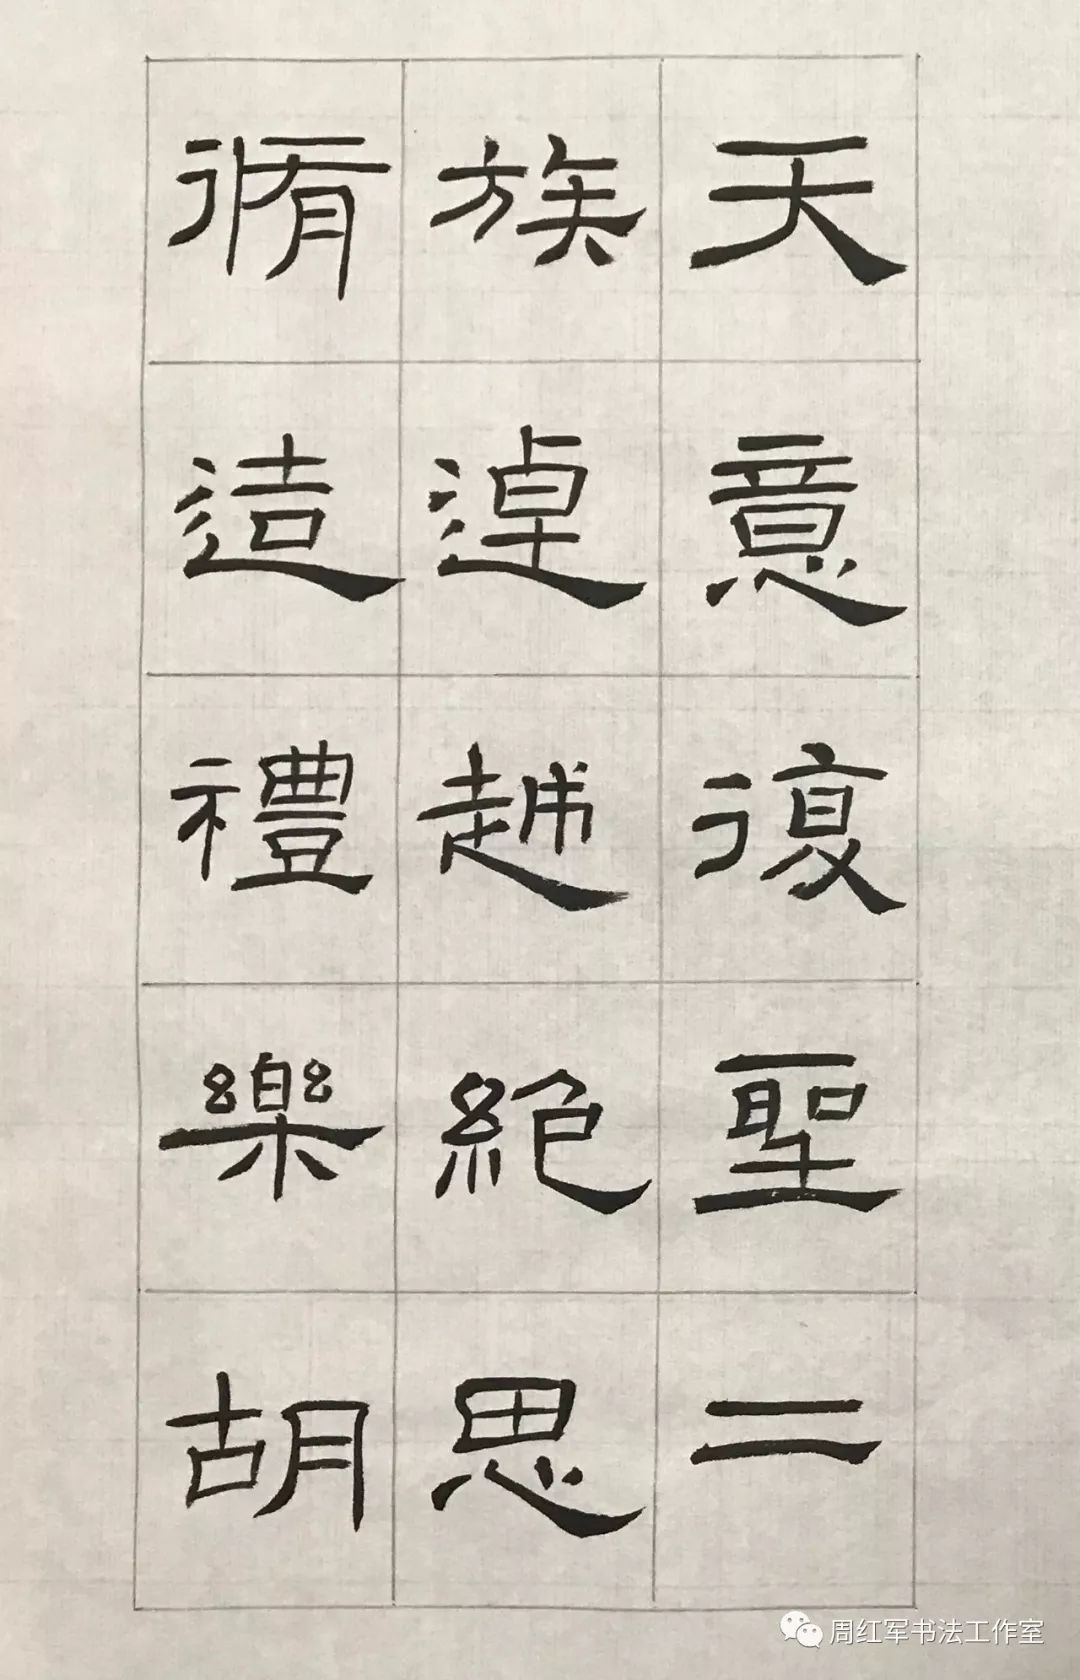 天意復聖二
族逴越絶思
脩造禮樂胡
周红军书法工作室